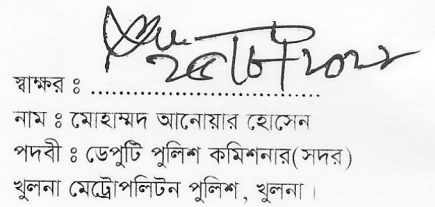 স্বাক্ষর : ....................................
নাম : মোহাম্মদ আনোয়ার হোসেন
পদবী : ডেপুটি পুলিশ কমিশনার(সদর)
খুলনা মেট্রোপলিটন পুলিশ, খুলনা।